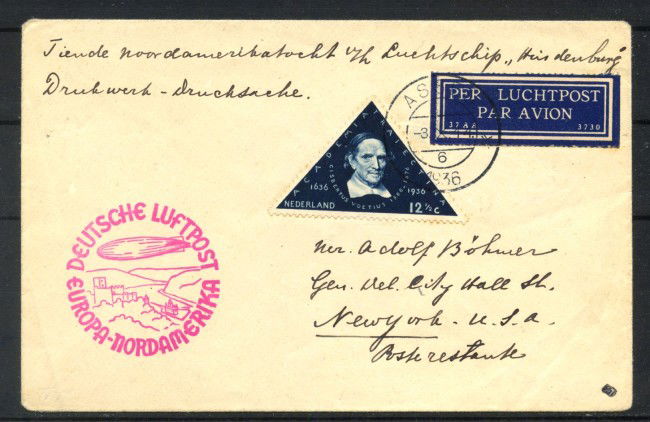 Tiende noordamerikatocht v/h Luchtschip „Hindenburg
Drukwerk - Drucksache.
PER LUCHTPOST
PAR AVION
3788 3730
AS
-8
6
1936
ACADEMIA RHENO TRAIECTINA
GISBERTUS VOETIUS
1636 1936
NEDERLAND 12½ C
DEUTSCHE LUFTPOST
EUROPA-NORDAMERIKA
Mr. Adolf Böhmer
Gen. Del. City Hall St.
New York - U.S.a.
Poste restante